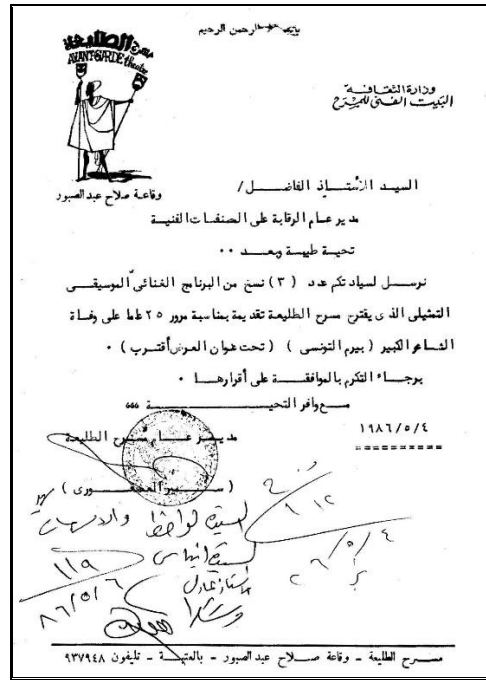 بسم الله الرحمن الرحيم
مسرح الطليعة
AVANT-GARDE theatre
وزارة الثقافة
البيت الفنى للمسرح
وقاعة صلاح عبد الصبور
السيد الأستاذ الفاضل /
مدير عام الرقابة على المصنفات الفنية
تحية طيبة وبعد ..
نرسل لسيادتكم عدد ( ٣ ) نسخ من البرنامج الغنائى الموسيقى
التمثيلى الذى يقترح مسرح الطليعة تقديمة بمناسبة مرور ٢٥ عاما على وفاة
الشاعر الكبير ( بيرم التونسى ) ( تحت عنوان العرض أقترب ) .
برجاء التكرم بالموافقة على أقرارها .
مع وافر التحية ،،،
١٩٨٦/٥/٤
مدير عام مسرح الطليعة
( سمير العصفورى )
السيدة
السيدة
١١٩
٨٦/٥/٦
مسرح الطليعة - وقاعة صلاح عبد الصبور - بالعتبة - تليفون ٩٣٧٩٤٨